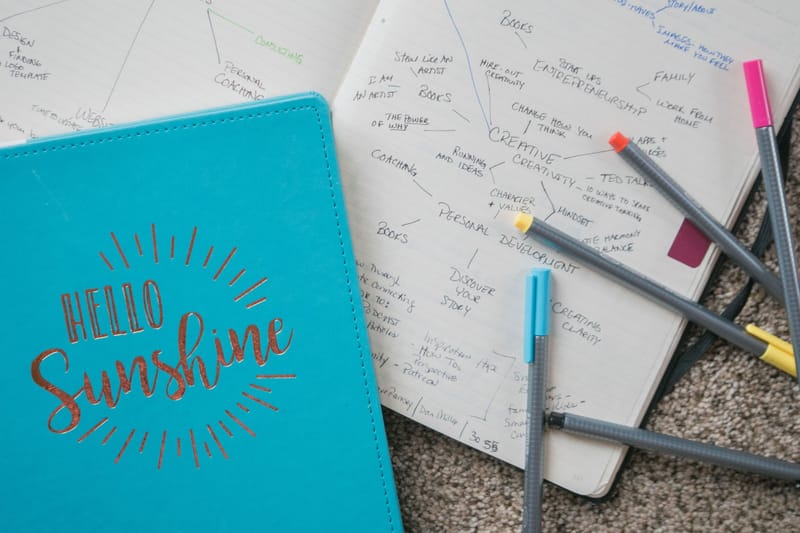 DESIGN
+
FINDING
LOGO
TEMPLATE
CONSULTING
PERSONAL
COACHING
HELLO
Sunshine
STORY/ABOUT
IMAGES: HOW THEY
MAKE YOU FEEL
BOOKS
START UPS
ENTREPRENEURSHIP
FAMILY
WORK FROM
HOME
STEAL LIKE AN
ARTIST
I AM
AN ARTIST
BOOKS
THE POWER
OF WHY
HIRE-OUT
CREATIVITY
CHANGE HOW YOU
THINK
CREATIVE
CREATIVITY
APPS +
RUNNING
AND IDEAS
TED TALK
10 WAYS TO
CREATIVE THINKING
COACHING
CHARACTER
+ VALUES
MINDSET
HARMONY
BALANCE
PERSONAL DEVELOPMENT
BOOKS
DISCOVER
YOUR
STORY
CREATING
CLARITY
PODCAST
Inspiration
- HOW TO
- Perspective
- Patreon
30 55